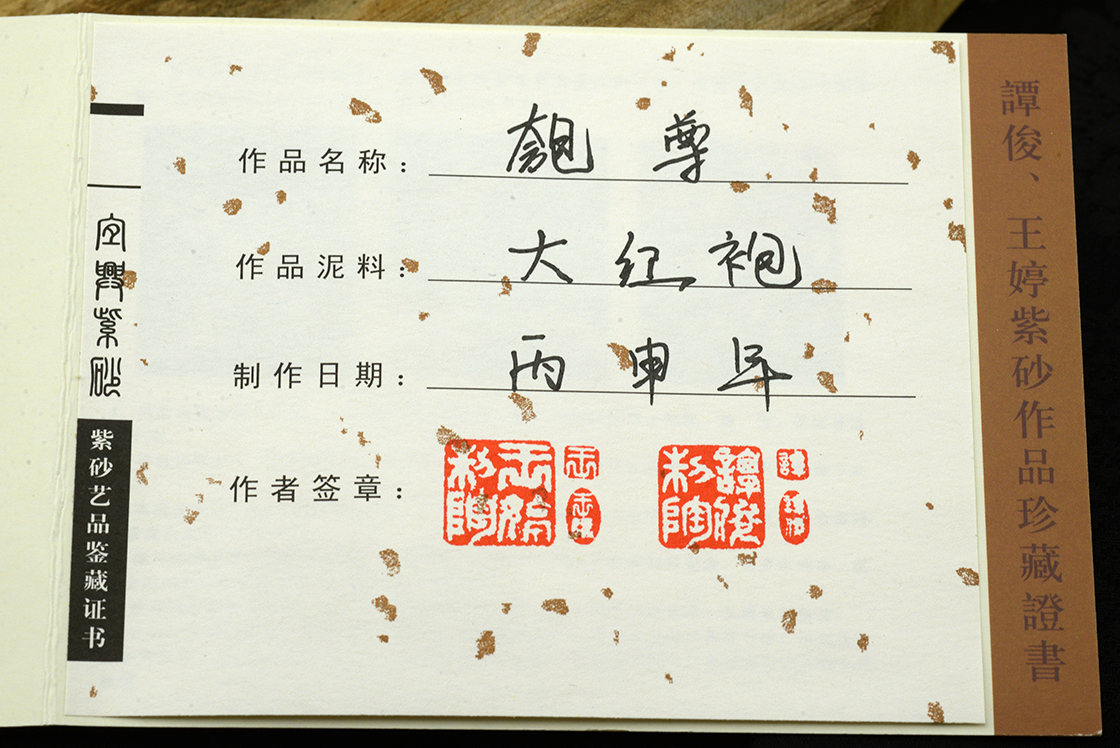 宜興紫砂
紫砂艺品鉴藏证书
作品名称：匏尊
作品泥料：大红袍
制作日期：丙申年
作者签章：
王婷制陶
王
王婷
譚俊制陶
譚
譚俊、王婷紫砂作品珍藏證書